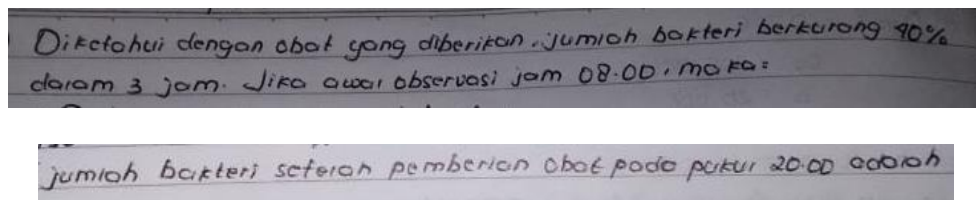 Diketahui dengan obat yang diberikan, jumlah bakteri berkurang 90%
dalam 3 jam. Jika awal observasi jam 08.00, maka:
jumlah bakteri setelah pemberian obat pada pukul 20.00 adalah